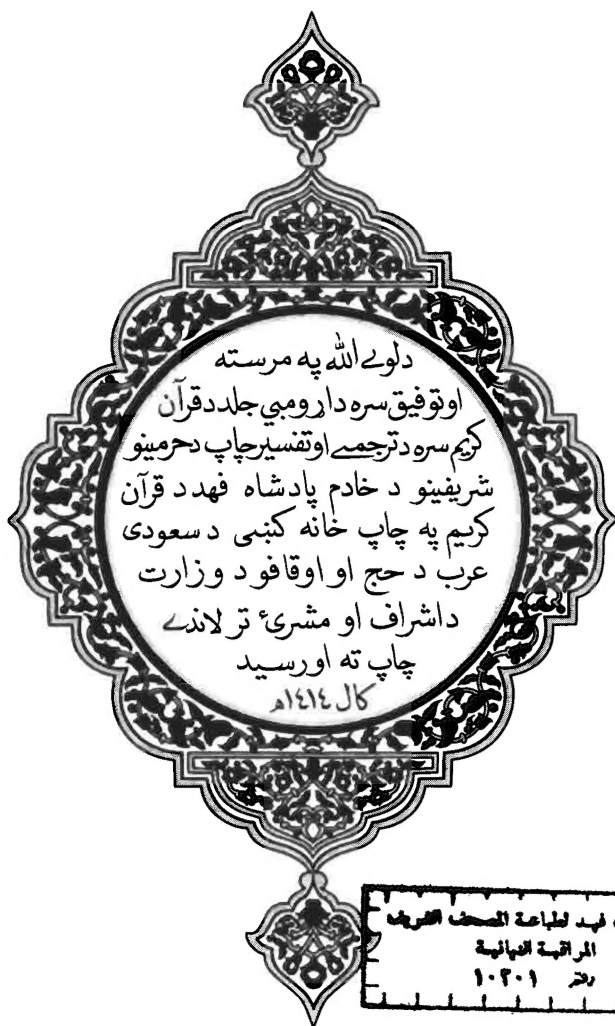 دلوے الله په مرسته
او توفیق سره دا ړومبي جلد د قرآن
کریم سره د ترجمے او تفسیر چاپ د حرمینو
شریفینو د خادم پادشاه فهد د قرآن
کریم په چاپ خانه کښی د سعودی
عرب د حج او اوقافو د وزارت
د اشراف او مشرئ تر لاندے
چاپ ته اورسید
کال ١٤١٤ه
فهد لطباعة المصحف الشريف
المراقبة النهائية
دفتر ١٠٢٠١